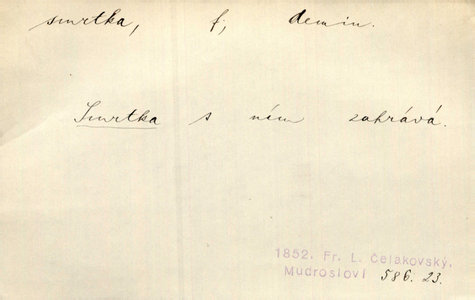 smrtka, f, demin.
Smrtka s ním zahrává.
1852. Fr. L. Čelakovský,
Mudrosloví 586. 23.